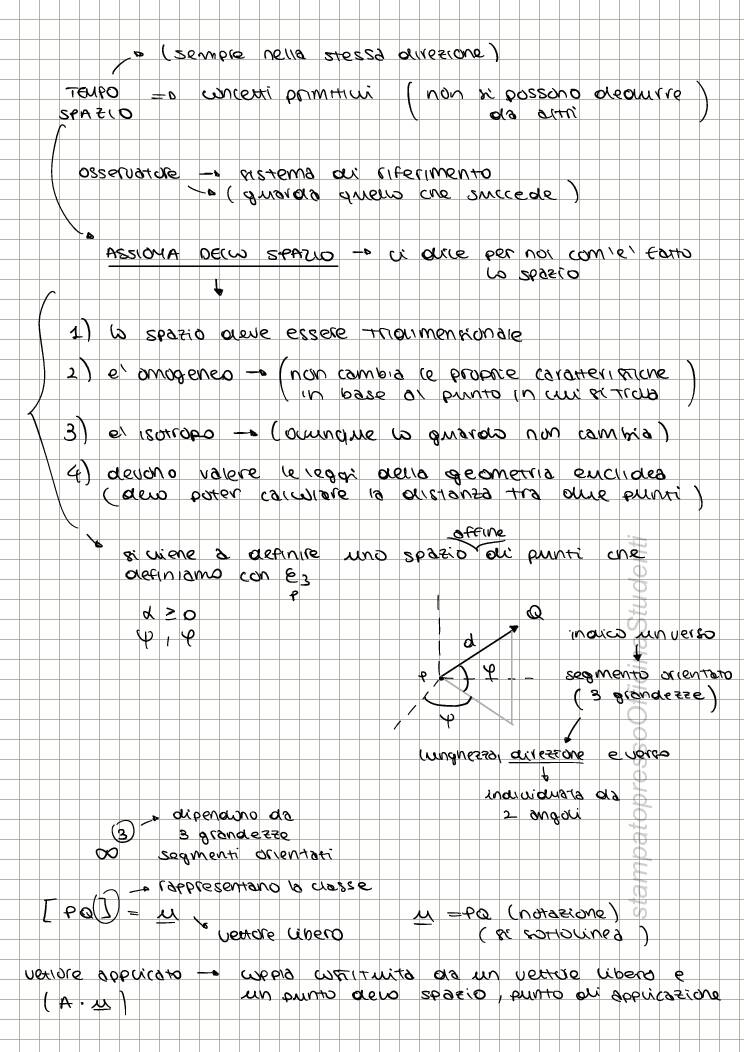 (sempre nella stessa direzione)
TEMPO
SPAZIO => concetti primitivi (non si possono dedurre
da altri)
osservatore → sistema di riferimento
→ (guarda quello che succede)
ASSIOMA DELLO SPAZIO → ci dice per noi com'e' fatto
lo spazio
1) lo spazio deve essere tridimensionale
2) e' omogeneo → (non cambia le proprie caratteristiche
in base al punto in cui si trova)
3) e' isotropo → (ovunque lo guardo non cambia)
4) devono valere le leggi della geometria euclidea
(devo poter calcolare la distanza tra due punti)
affine
si viene a definire uno spazio di punti che
definiamo con E3
p
d ≥ 0
φ, φ
Q
d
P
φ
φ
indico un verso
segmento orientato
(3 grandezze)
lunghezza, direzione e verso
individuata da
2 angoli
∞ 3 → dipendono da
3 grandezze
segmenti orientati
→ rappresentano la classe
[PQ] = u
vettore libero
u = PQ (notazione)
(si sottolinea)
vettore applicato → coppia costituita da un vettore libero e
(A · u) un punto dello spazio, punto di applicazione
stampatopressoOfficinaStudenti